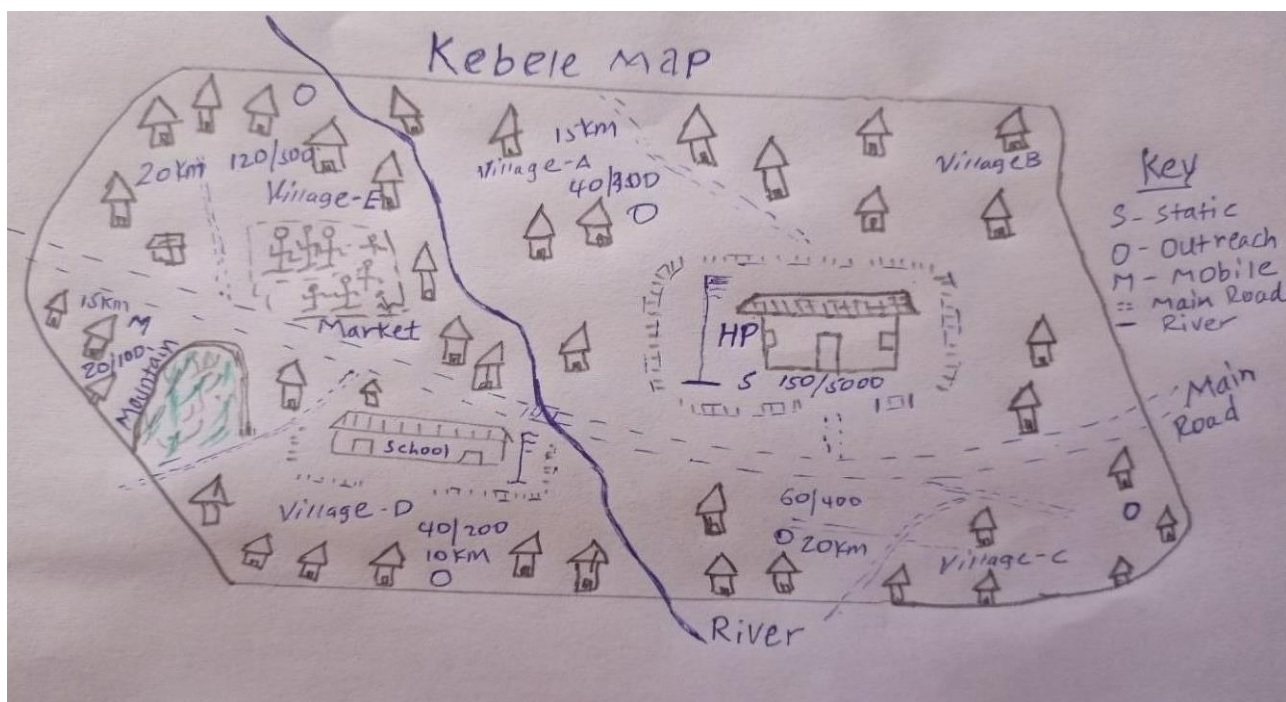 Kebele Map
20 Km
120/500
Village-E
15 Km
Village-A
40/300
O
O
Village B
Key
S - Static
O - Outreach
M - Mobile
:: Main Road
— River
15Km
M
20/100
Mauntain
Market
HP
S 150/5000
Main
Road
School
Village-D
40/200
10 Km
O
60/400
O 20Km
Village-C
O
River